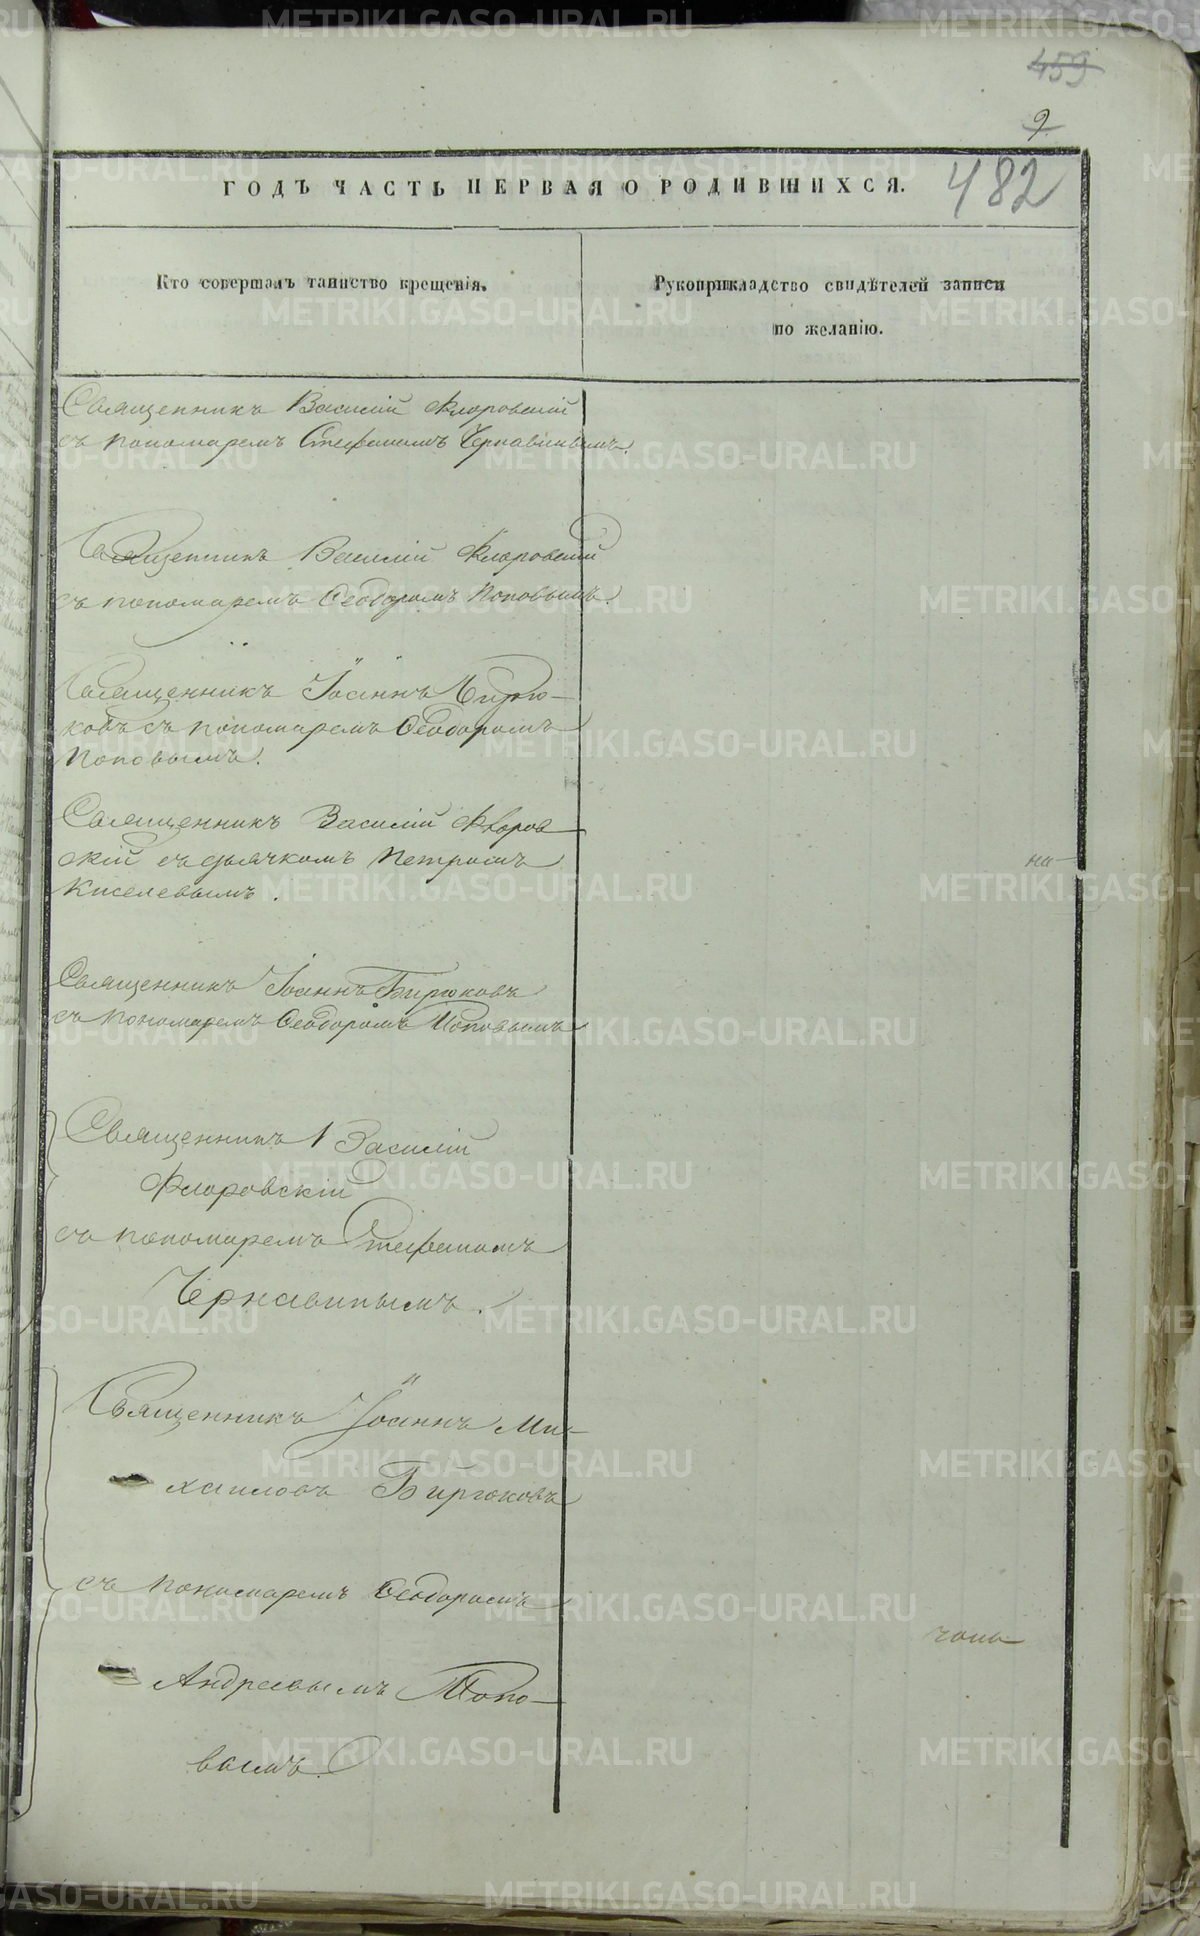 459
9.
482
ГОДЪ ЧАСТЬ ПЕРВАЯ О РОДИВШИХСЯ.
Кто совершалъ таинство крещенія.
Рукоприкладство свидѣтелей записи
по желанію.
Священникъ Василій Флоровскій
съ пономаремъ Стефаномъ Чернавинымъ.
Священникъ Василій Флоровскій
съ пономаремъ Ѳеодоромъ Поповымъ.
Священникъ Іоаннъ Бирю-
ковъ съ пономаремъ Ѳеодоромъ
Поповымъ.
Священникъ Василій Флоров-
скій съ дьячкомъ Петромъ
Киселевымъ.
Священникъ Іоаннъ Бирюковъ
съ пономаремъ Ѳеодоромъ Поповымъ
Священникъ Василій
Флоровскій
съ пономаремъ Стефаномъ
Чернавинымъ.
Священникъ Іоаннъ Ми-
хаиловъ Бирюковъ
съ пономаремъ Ѳеодоромъ
Андреевымъ Попо-
вымъ.
на-
METRIKI.GASO-URAL.RU